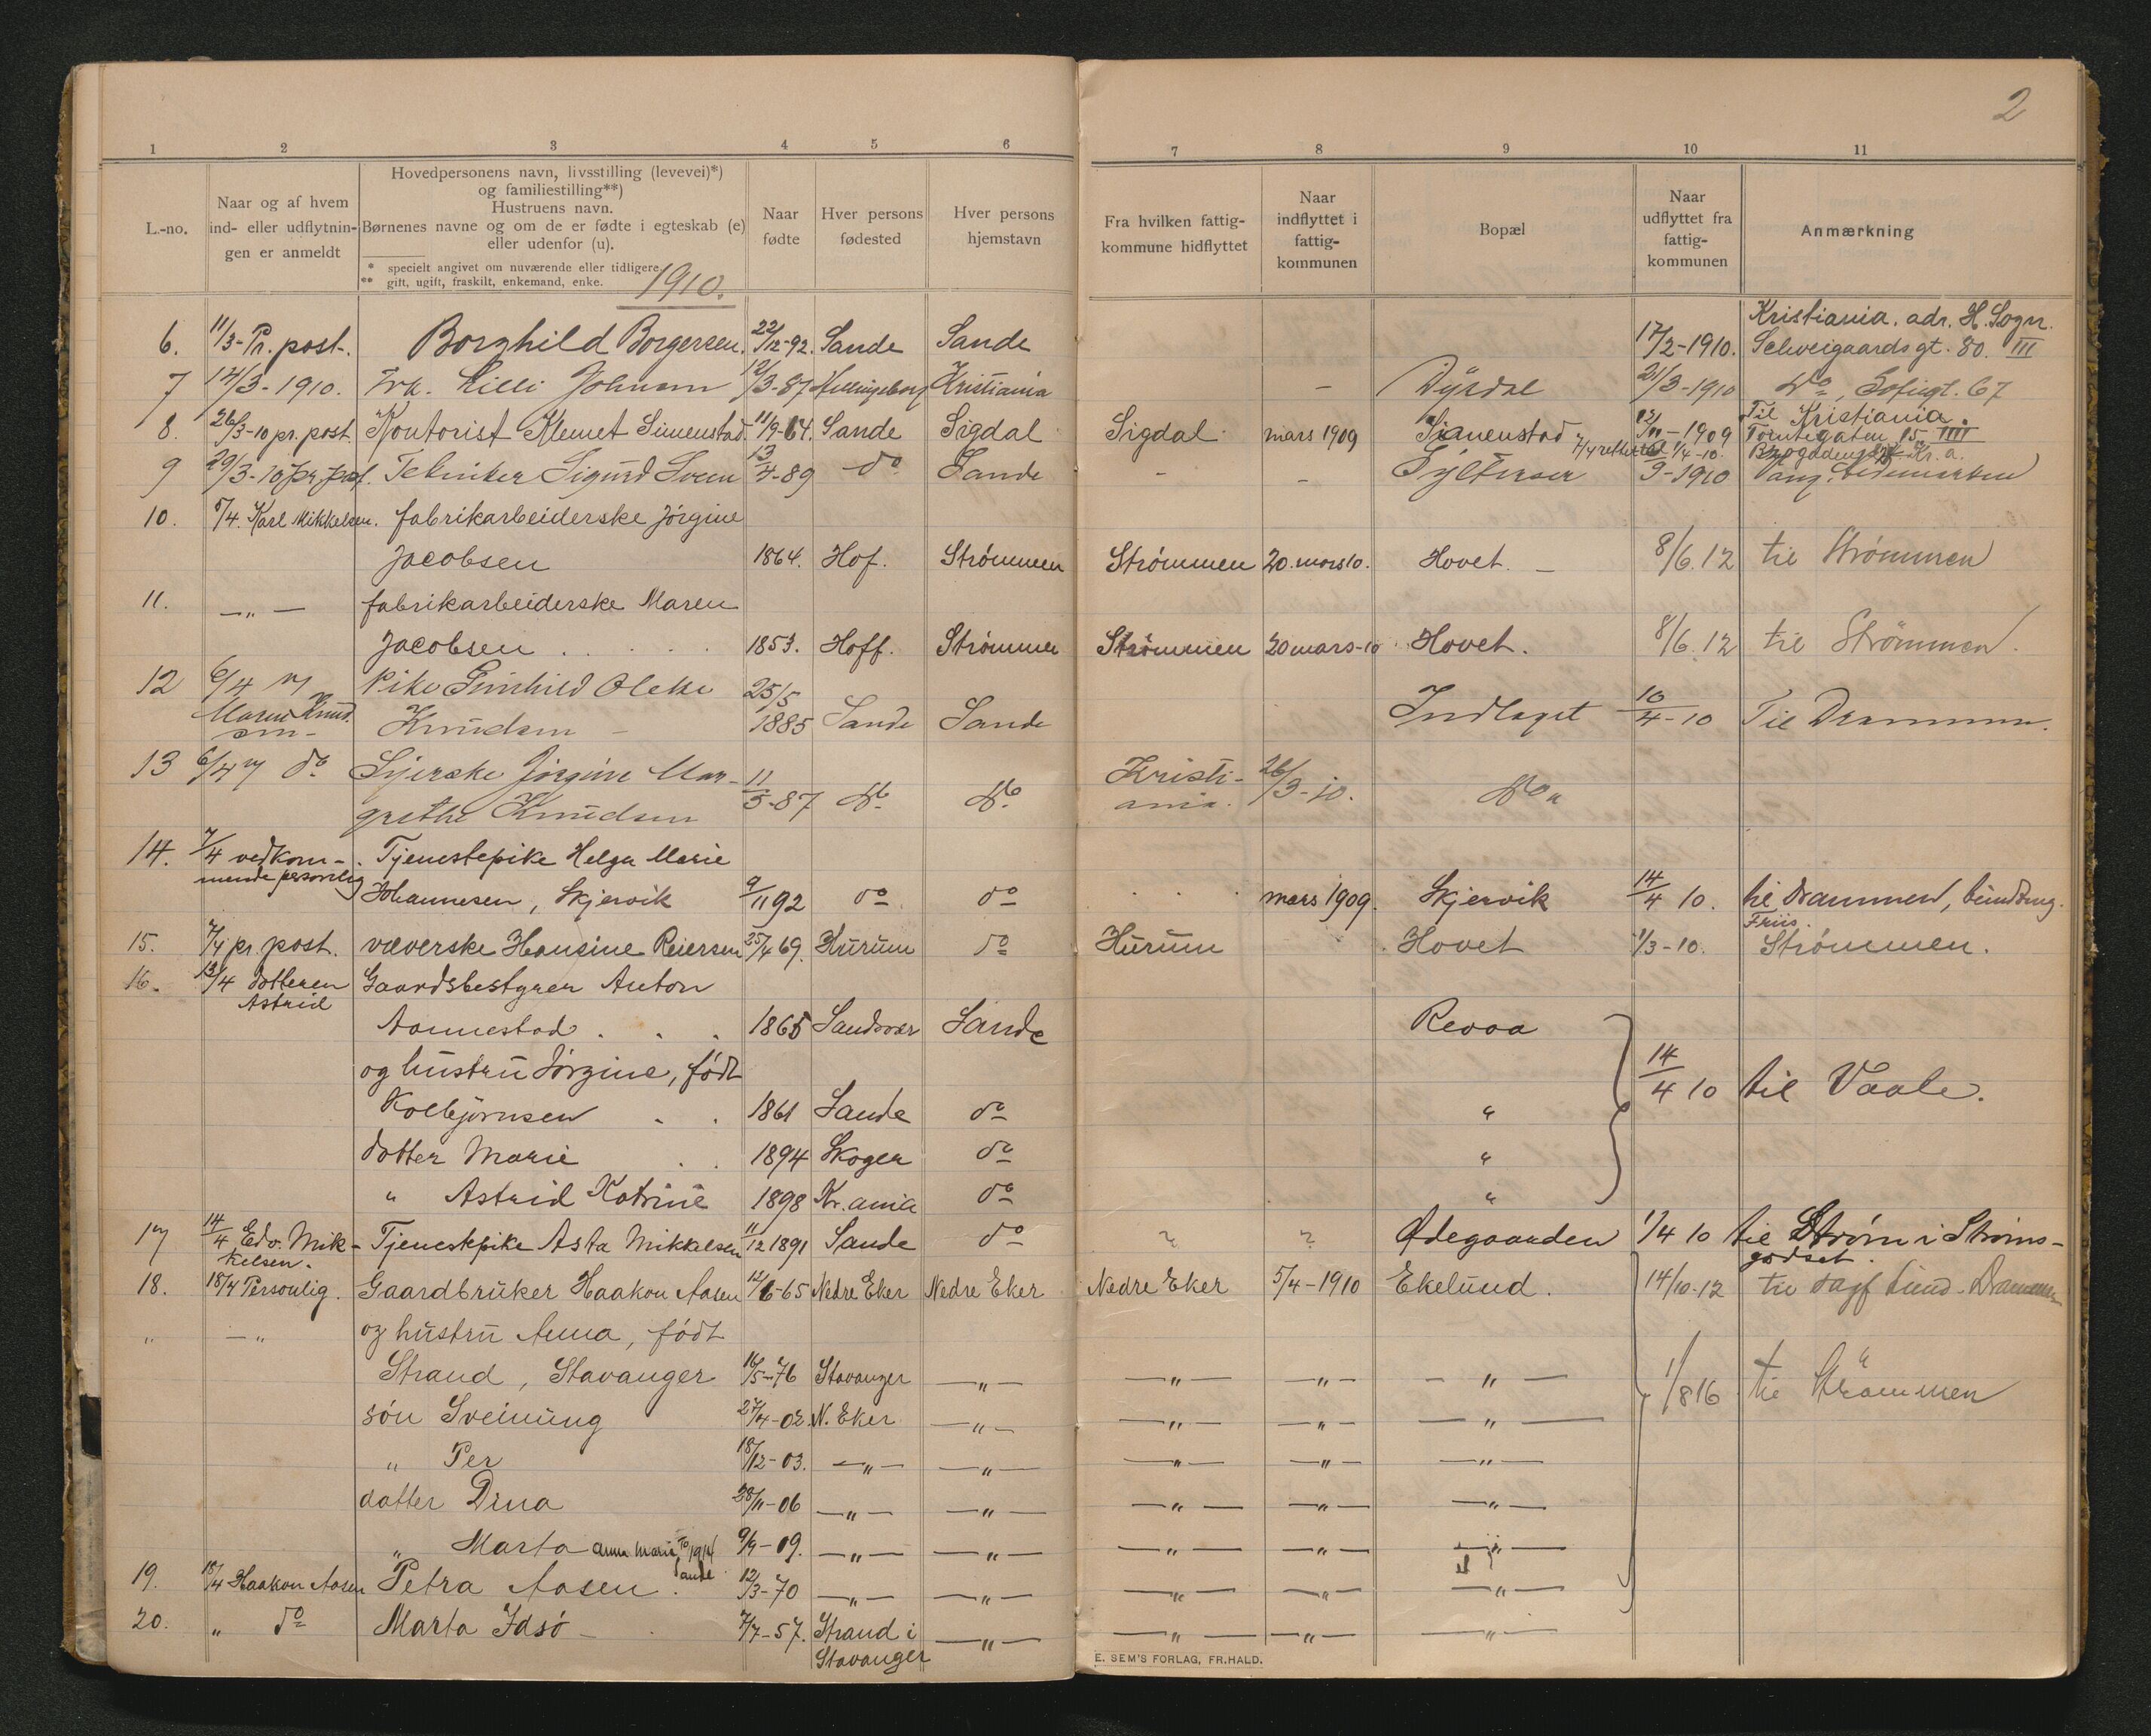 2
1 2 3 4 5 6 7 8 9 10 11
L.-no.
Naar og af hvem
ind- eller udflytnin-
gen er anmeldt
Hovedpersonens navn, livsstilling (levevei)*)
og familiestilling**)
Hustruens navn.
Børnenes navne og om de er fødte i egteskab (e)
eller udenfor (u).
* specielt angivet om nuværende eller tidligere
** gift, ugift, fraskilt, enkemand, enke.
1910.
Naar
fødte
Hver persons
fødested
Hver persons
hjemstavn
Fra hvilken fattig-
kommune hidflyttet
Naar
indflyttet i
fattig-
kommunen
Bopæl
Naar
udflyttet fra
fattig-
kommunen
Anmærkning
Kristiania. adr. H. Sogn.
6. 11/3- Pr. post. Borghild Borgersen. 22/12-92. Sande Sande 17/2-1910. Schveigaards gt. 80. III
7 12/3-1910. Frk. Lilli 12/3-87 Kristiania - Dyrdal 21/3-1910 Do, Sofiegt. 67
Til Kristiania.
8. 26/3-10 pr. post. Kontorist Klemet Simenstad. 11/9-64. Sande Sigdal Sigdal mars 1909 Simenstad 12/11-1909 Tomtegaten 15 IIII
9 29/3-10 pr. post. Tekniker Sigurd Sveen 13/4-89 do Sande - - 9-1910 Vang. Hedemarken
10. 5/4. Karl Mikkelsen. fabrikarbeiderske Jørgine
Jacobsen 1864. Hof. Strømmen Strømmen 20. mars 10. Hovet. - 8/6.12 til Strømmen
11. -„- fabrikarbeiderske Maren
Jacobsen . . . . . 1853. Hoff. Strømmen Strømmen 20 mars-10 Hovet. 8/6.12 til Strømmen.
12 6/4 Pike Gunhild Oleke 25/5
Maren Knud-
sen- Knudsen - 1885 Sande Sande Indlaget 10/4-10 Til Drammen.
13 6/4 do Syerske Jørgine Mar-
grethe Knudsen 11/5-87 do do Kristi-
ania. 26/3-10. do „
14. 7/4 vedkom- Tjenestepike Helga Marie
mende personlig Johannesen, Skjervik 9/11 92 do do mars 1909. Skjervik 14/4 10. til Drammen,
Friis.
15. 7/4 pr. post. væverske Hansine Reiersen 25/4 69. Hurum do Hurum Hovet 1/3-10. Strømmen.
16. 13/4 datteren Gaardsbestyrer Anton
Astrid
Aannestad . . . 1865 Sandsvær Sande Revaa
og hustru Jørgine, født
Kolbjørnsen . . 1861 Sande do „ 14/4 10 til Vaale.
datter Marie . . 1894 Skoger do „
„ Astrid Katrine 1898 Kr.ania do „
17 14/4 Edv. Mik- Tjenestepike Asta Mikkelsen 11/12 1891 Sande do ? ? Ødegaarden 1/4 10 til Strøm i Strøms-
kelsen. godset.
18. 18/4 Personlig. Gaardbruker Haakon Aasen 12/6-65 Nedre Eker Nedre Eker Nedre Eker 5/4-1910 Ekelund. 14/10-12 til Dagf. Lund - Drammen
„ -„ og hustru Anna, født
Strand, Stavanger 16/5-76 Stavanger -„- -„- -„- -„- 1/8 16 til Strømmen
søn Sveinung 27/4-02. N. Eker -„- -„- -„- -„-
„ Per 18/12-03. -„- -„- -„- -„- -„-
datter Dina 28/11-06 -„- -„- -„- -„- -„-
„ Marta Anna Marie 1914 Sande 9/9-09. -„- -„- -„- -„- -„-
19. 18/4 Haakon Aasen Petra Aasen. 12/3-70 -„- -„- -„- -„- -„-
20. „ do Marta Idsö - 7/7-57. Strand i -„- -„- -„- -„-
Stavanger
E. SEM'S FORLAG, FR.HALD.